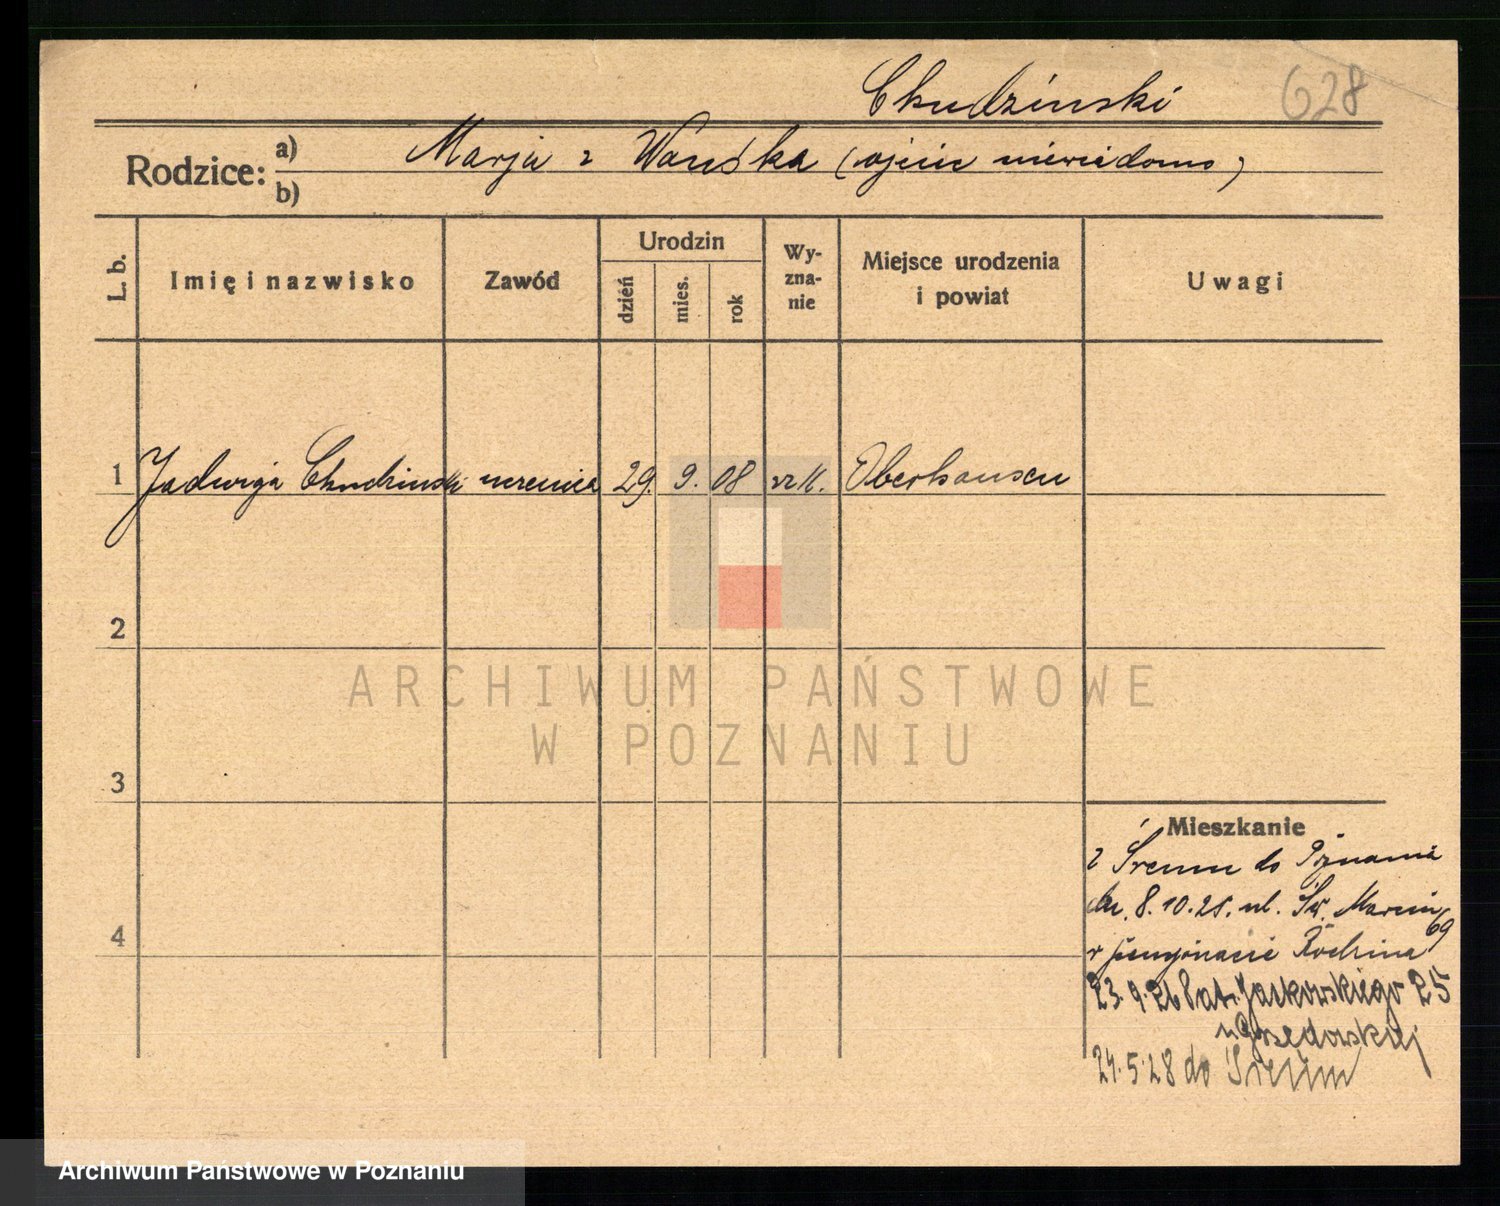 Chudzinski 628
Rodzice: a) Marja z (ojciec niewiadomo)
b)
L. b.
Imię i nazwisko
Zawód
Urodzin
dzień
mies.
rok
Wy-
zna-
nie
Miejsce urodzenia
i powiat
Uwagi
1 Jadwiga Chudzinski uczenica 29. 9. 08 rz k. Oberhausen
2
ARCHIWUM PAŃSTWOWE
W POZNANIU
3
Mieszkanie
z Śremu do Poznania
dn. 8.10.25. ul. Św. Marcin 69
4
23.9.26 Patr. Jackowskiego 25
24.5.28 do Śremu
Archiwum Państwowe w Poznaniu